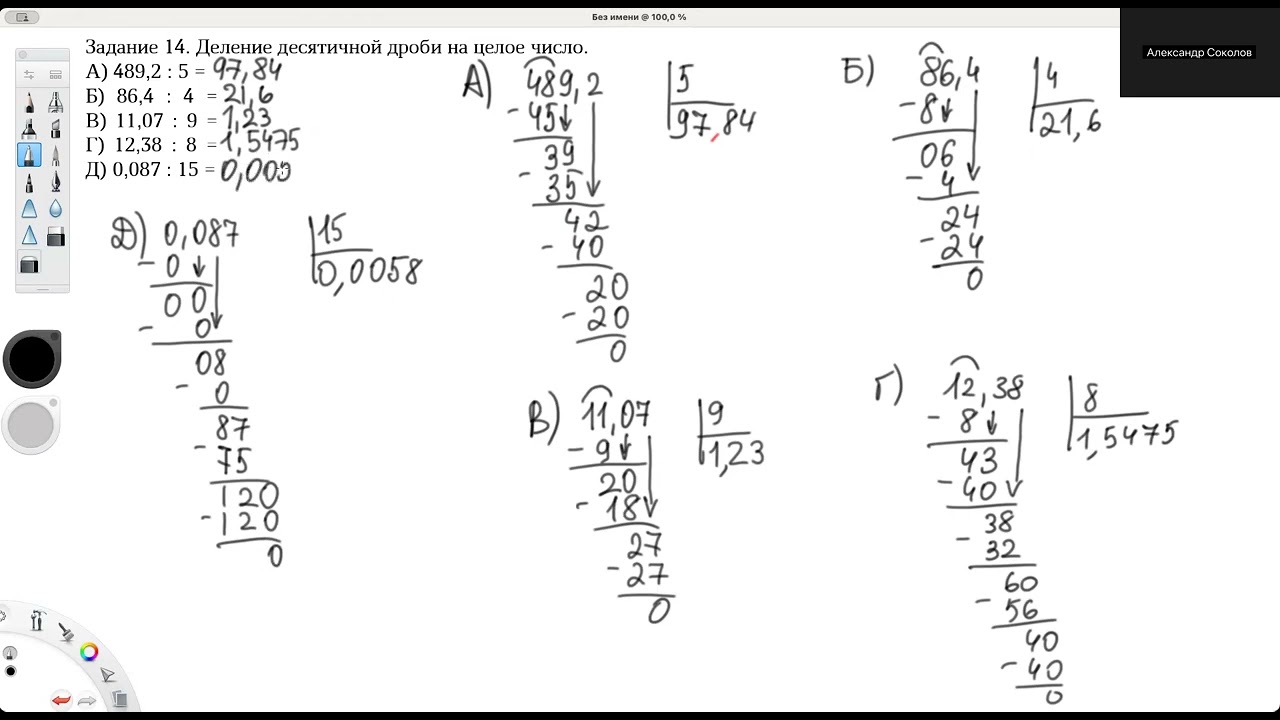 Без имени @ 100,0 %
Александр Соколов
Задание 14. Деление десятичной дроби на целое число.
А) 489,2 : 5 = 97,84
Б) 86,4 : 4 = 21,6
В) 11,07 : 9 = 1,23
Г) 12,38 : 8 = 1,5475
Д) 0,087 : 15 = 0,005
А) 489,2 5
- 45 97,84
39
- 35
42
- 40
20
- 20
0
Б) 86,4 4
- 8 21,6
06
- 4
24
- 24
0
Д) 0,087 15
- 0 0,0058
00
- 0
08
- 0
87
- 75
120
- 120
0
В) 11,07 9
- 9 1,23
20
- 18
27
- 27
0
Г) 12,38 8
- 8 1,5475
43
- 40
38
- 32
60
- 56
40
- 40
0